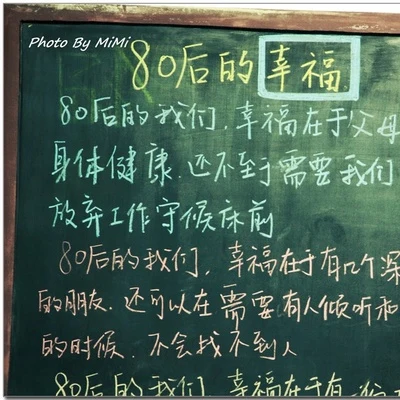 Photo By MiMi
80后的幸福
80后的我们,幸福在于父母
身体健康,还不至于需要我们
放弃工作守候床前
80后的我们,幸福在于有几个深
的朋友,还可以在需要有人倾听和
的时候,不会找不到人
80后的我们,幸福在于有